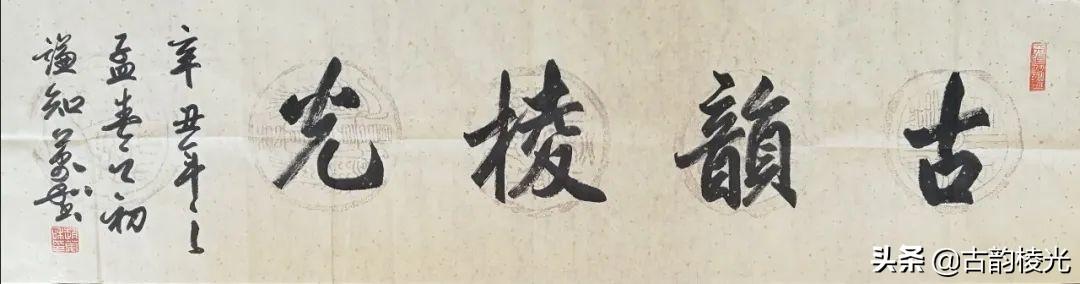 古韻棱光
辛丑年之
孟春之初
謙知
头条 @古韵棱光